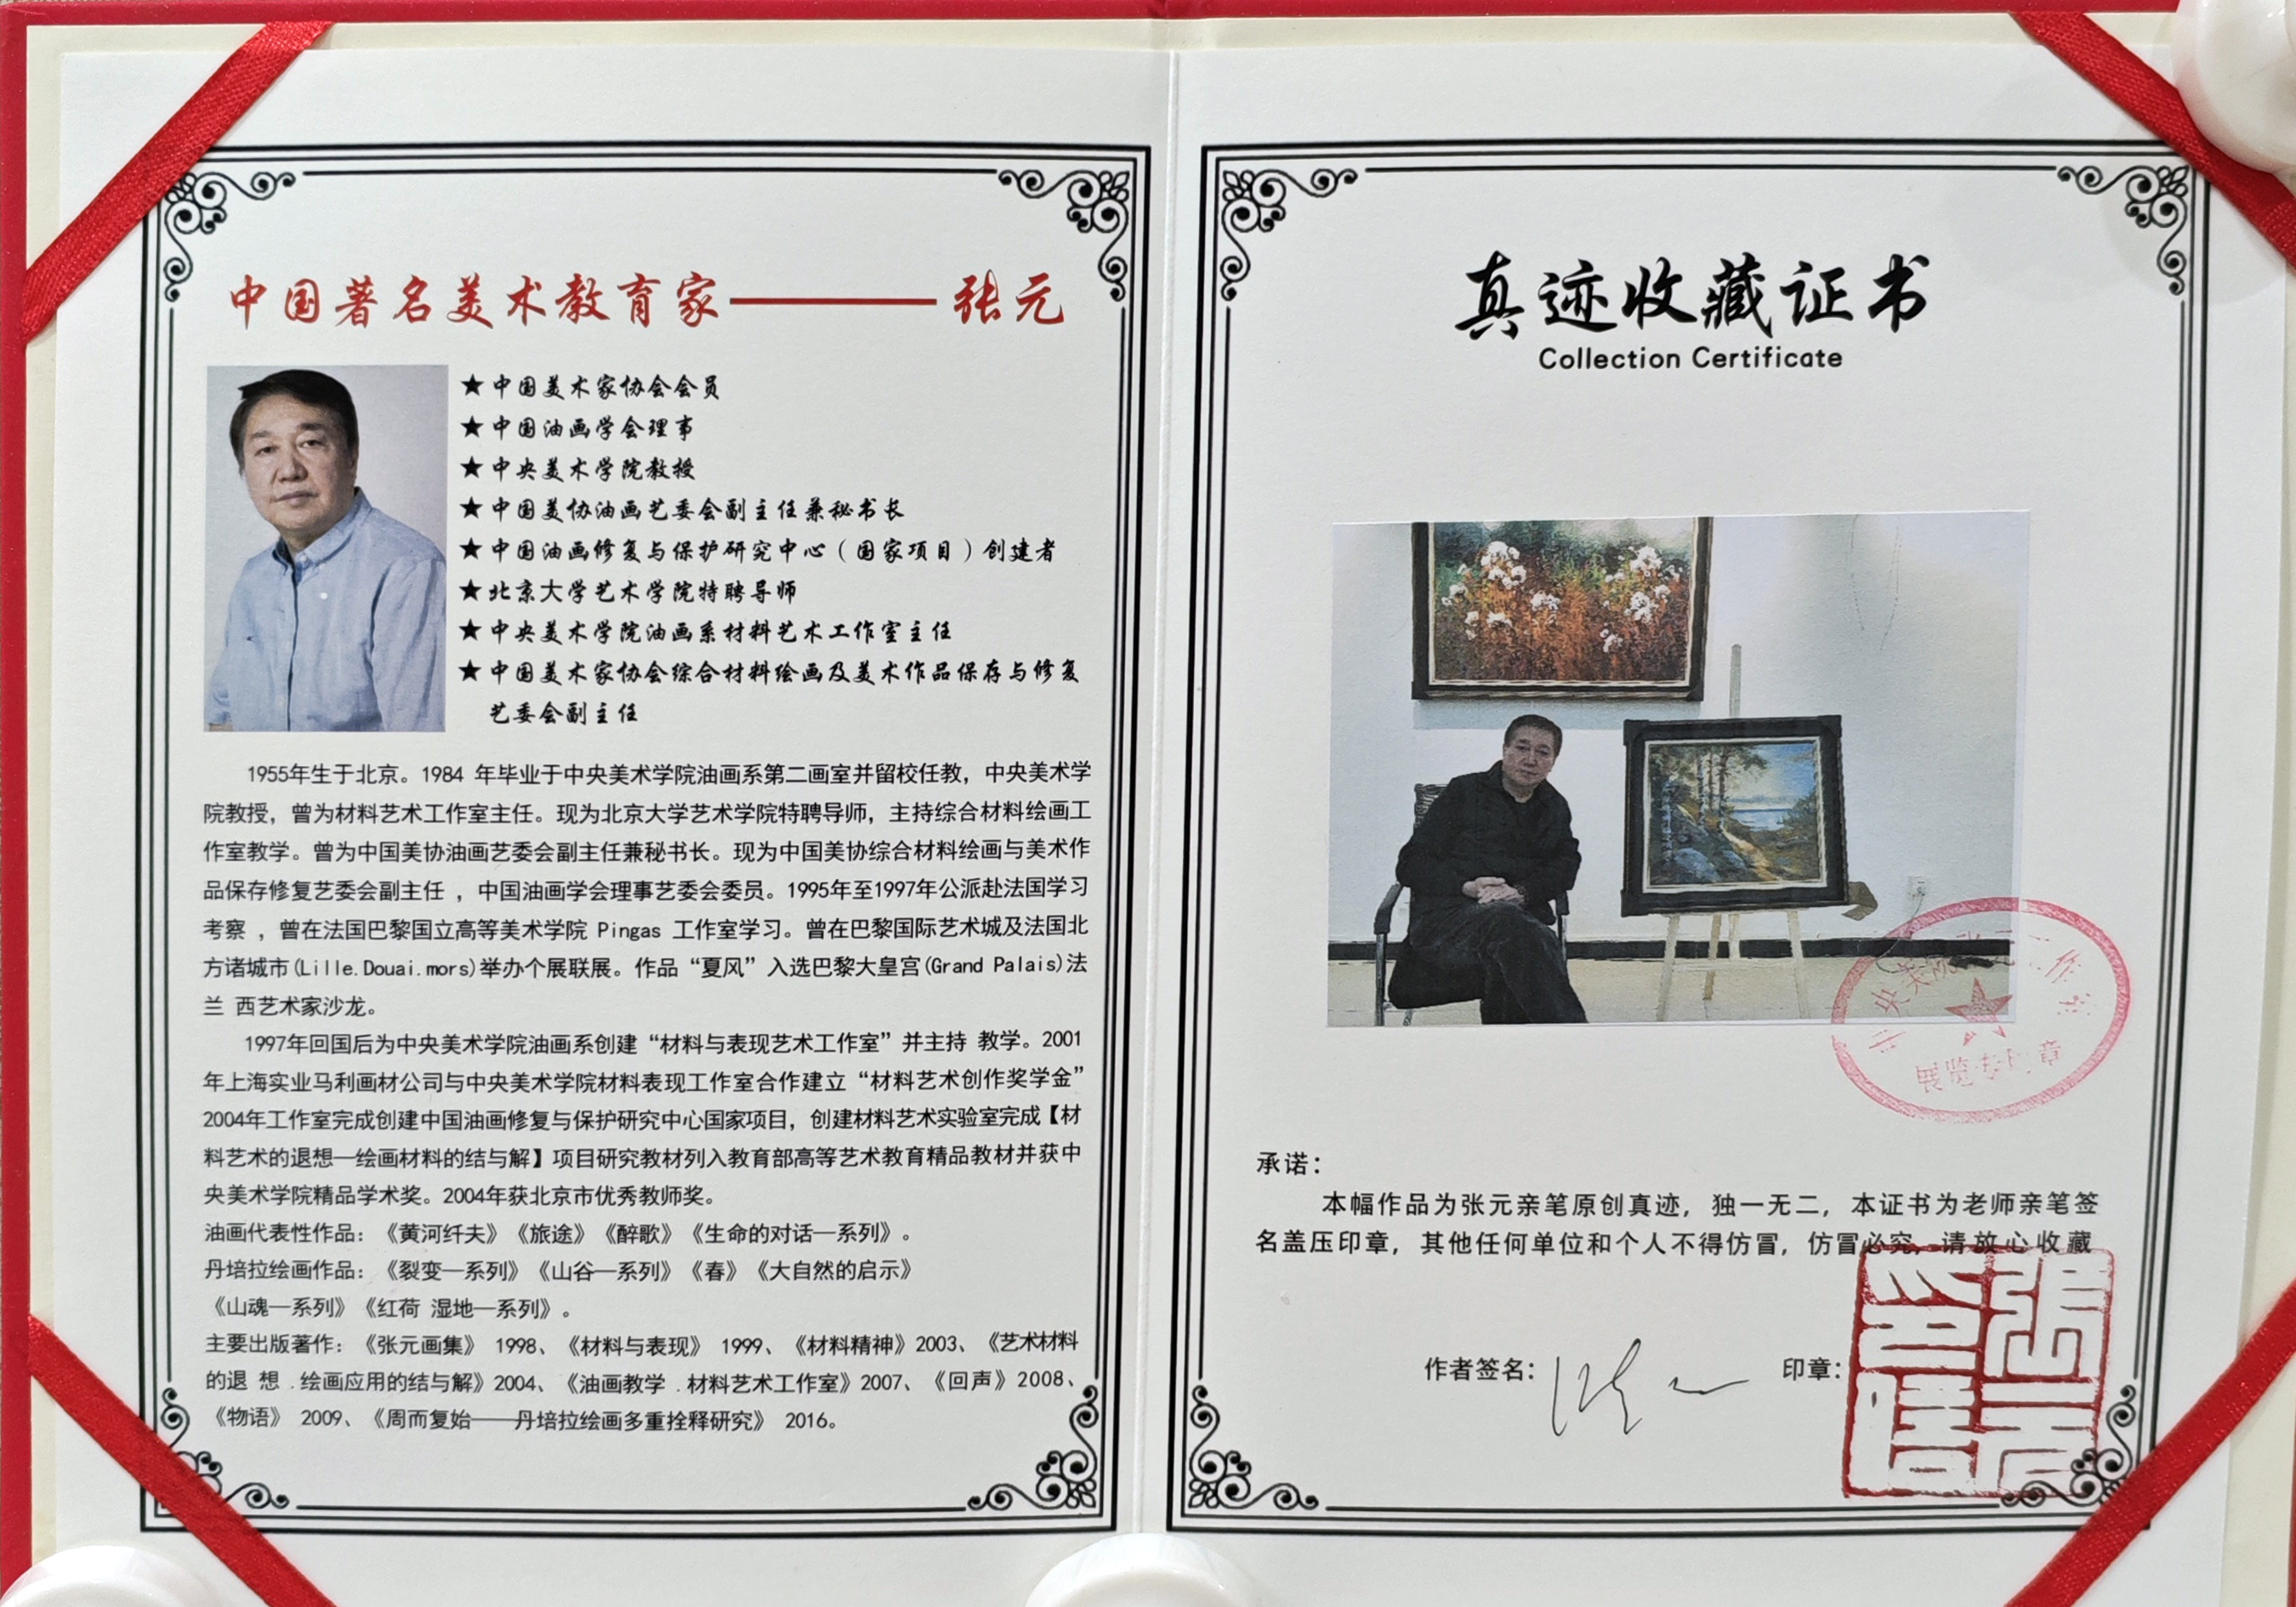 中国著名美术教育家——张元
★中国美术家协会会员
★中国油画学会理事
★中央美术学院教授
★中国美协油画艺委会副主任兼秘书长
★中国油画修复与保护研究中心（国家项目）创建者
★北京大学艺术学院特聘导师
★中央美术学院油画系材料艺术工作室主任
★中国美术家协会综合材料绘画及美术作品保存与修复
艺委会副主任
1955年生于北京。1984 年毕业于中央美术学院油画系第二画室并留校任教，中央美术学
院教授，曾为材料艺术工作室主任。现为北京大学艺术学院特聘导师，主持综合材料绘画工
作室教学。曾为中国美协油画艺委会副主任兼秘书长。现为中国美协综合材料绘画与美术作
品保存修复艺委会副主任 ，中国油画学会理事艺委会委员。1995年至1997年公派赴法国学习
考察 ，曾在法国巴黎国立高等美术学院 Pingas 工作室学习。曾在巴黎国际艺术城及法国北
方诸城市(Lille.Douai.mors)举办个展联展。作品“夏风”入选巴黎大皇宫(Grand Palais)法
兰 西艺术家沙龙。
1997年回国后为中央美术学院油画系创建“材料与表现艺术工作室”并主持 教学。2001
年上海实业马利画材公司与中央美术学院材料表现工作室合作建立“材料艺术创作奖学金”
2004年工作室完成创建中国油画修复与保护研究中心国家项目，创建材料艺术实验室完成【材
料艺术的退想—绘画材料的结与解】项目研究教材列入教育部高等艺术教育精品教材并获中
央美术学院精品学术奖。2004年获北京市优秀教师奖。
油画代表性作品：《黄河纤夫》《旅途》《醉歌》《生命的对话—系列》。
丹培拉绘画作品：《裂变—系列》《山谷—系列》《春》《大自然的启示》
《山魂—系列》《红荷 湿地—系列》。
主要出版著作：《张元画集》 1998、《材料与表现》 1999、《材料精神》2003、《艺术材料
的退 想 .绘画应用的结与解》2004、《油画教学 .材料艺术工作室》2007、《回声》2008、
《物语》 2009、《周而复始——丹培拉绘画多重拴释研究》 2016。
真迹收藏证书
Collection Certificate
中央美院张元工作室
展览专用章
承诺：
本幅作品为张元亲笔原创真迹，独一无二，本证书为老师亲笔签
名盖压印章，其他任何单位和个人不得仿冒，仿冒必究，请放心收藏
作者签名：
印章：
张元